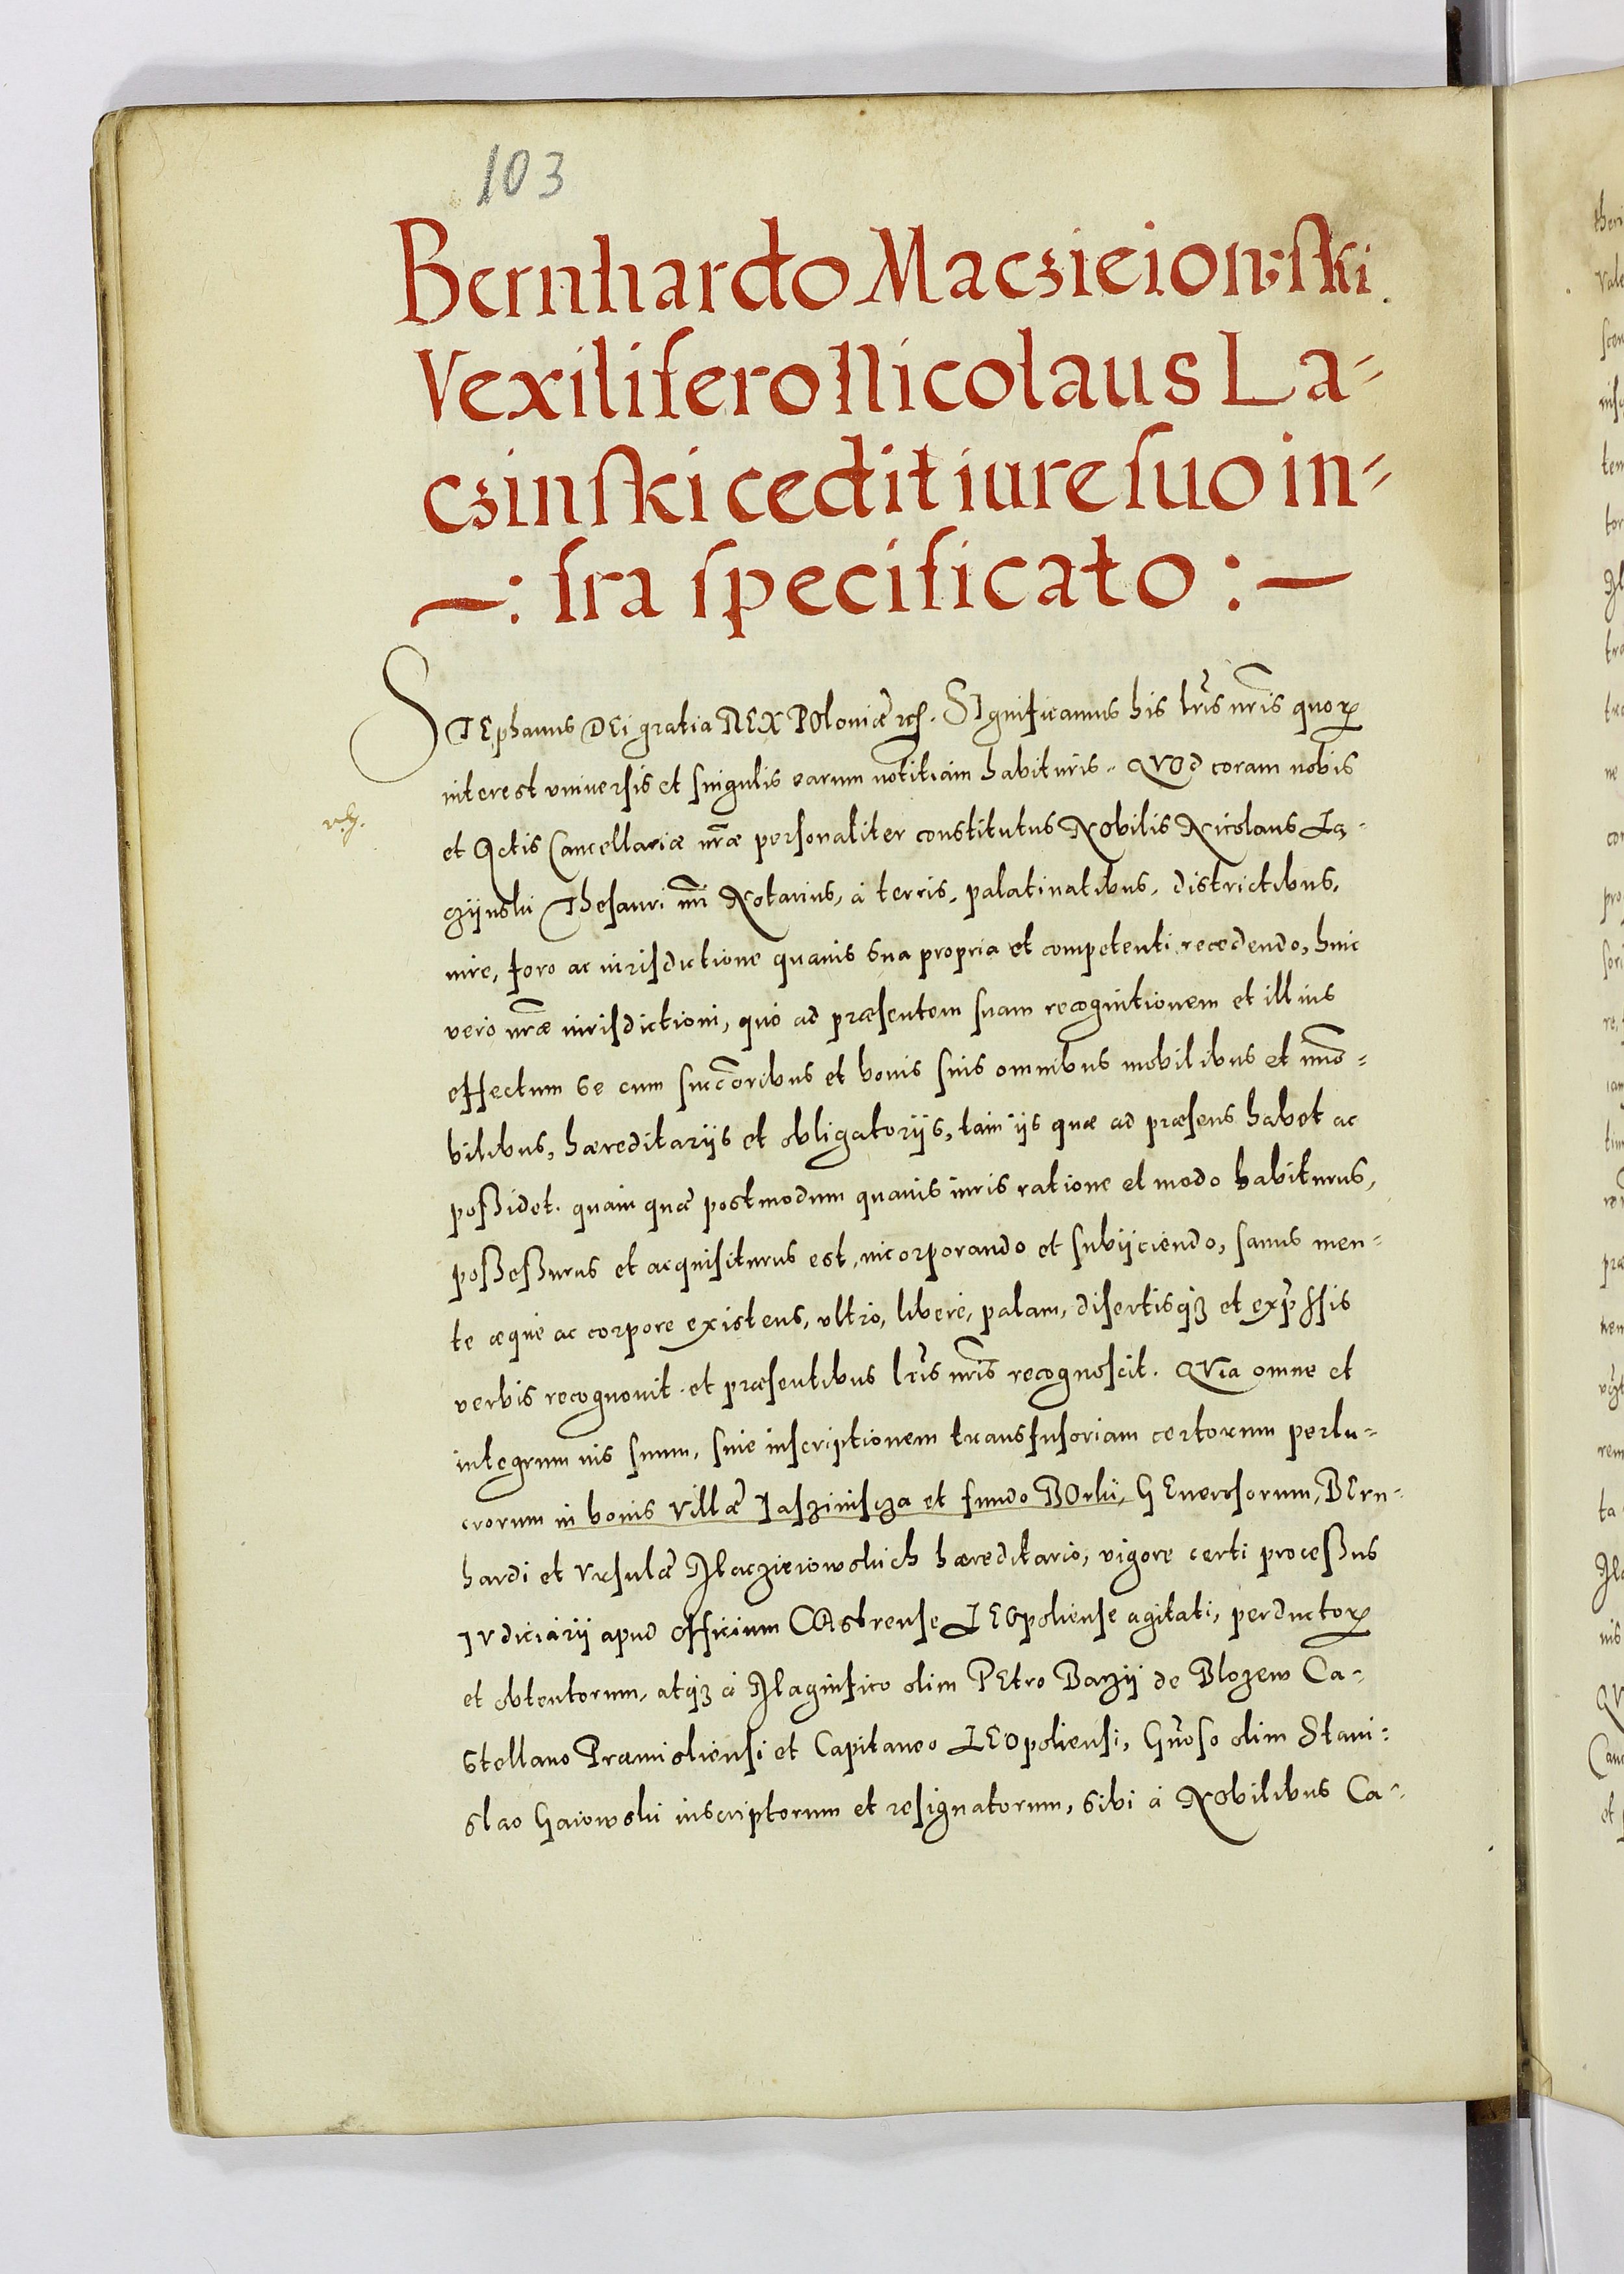 103
Bernhardo Maczieiowski
Vexilifero Nicolaus La-
czinski cedit iure suo in-
—: fra specificato :—
STEphanus DEi gratia REX POloniæ etc. SIgnificamus his lris nris quorꝝ
interest vniuersis et singulis earum notitiam habituris. QVOd coram nobis
et Actis Cancellariæ nræ personaliter constitutus NObilis Nicolaus La-
czijnski Thesauri nri NOtarius, à terris, palatinatibus, districtibus,
iure, foro ac iurisdictione quauis sua propria et competenti recedendo, huic
vero nræ iurisdictioni, quò ad præsentem suam recognitionem et illius
effectum se cum succoribus et bonis suis omnibus mobilibus et immo-
bilibus, hæreditarijs et obligatorijs, tam ijs quæ ad præsens habet ac
poßidet. quam quæ postmodum quauis iuris ratione et modo habiturus,
poßeßurus et acquisiturus est, incorporando et subijciendo, sanus men-
te æque ac corpore existens, vltro, libere, palam, disertisqꝫ et expressis
verbis recognouit et præsentibus lris nris recognoscit. QVia omne et
integrum ius suum, siue inscriptionem transfusoriam certorum perlu-
crorum in bonis Villæ Jasziniscza et fundo BOrki, GEnerosorum, BErn-
hardi et Vrsulæ Maczieiowskich hæreditario, vigore certi proceßus
JVdiciarij apud officium CAstrense LEOpoliense agitati, perductorꝝ
et obtentorum, atqꝫ à Magnifico olim PEtro Barzij de Blozew Ca-
stellano Præmisliensi et Capitaneo LEOpoliensi, Gnroso olim Stani-
slao Gaiowski inscriptorum et resignatorum, sibi à NObilibus Ca-